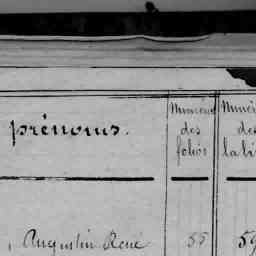 prénoms.
Numéros
des
folios
Numér
des
table
, Augustin René
55
59